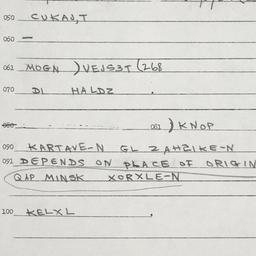 050 CUKAJ,T
060 —
061 MOGN ) VEJSƷT (268
070 DI HALDZ .
080
081 ) KNOP
090 KARTAVE-N GL ZAHZIKE-N
091 DEPENDS ON PLACE OF ORIGIN
QAP MINSK XORXLE-N
100 KELXL .